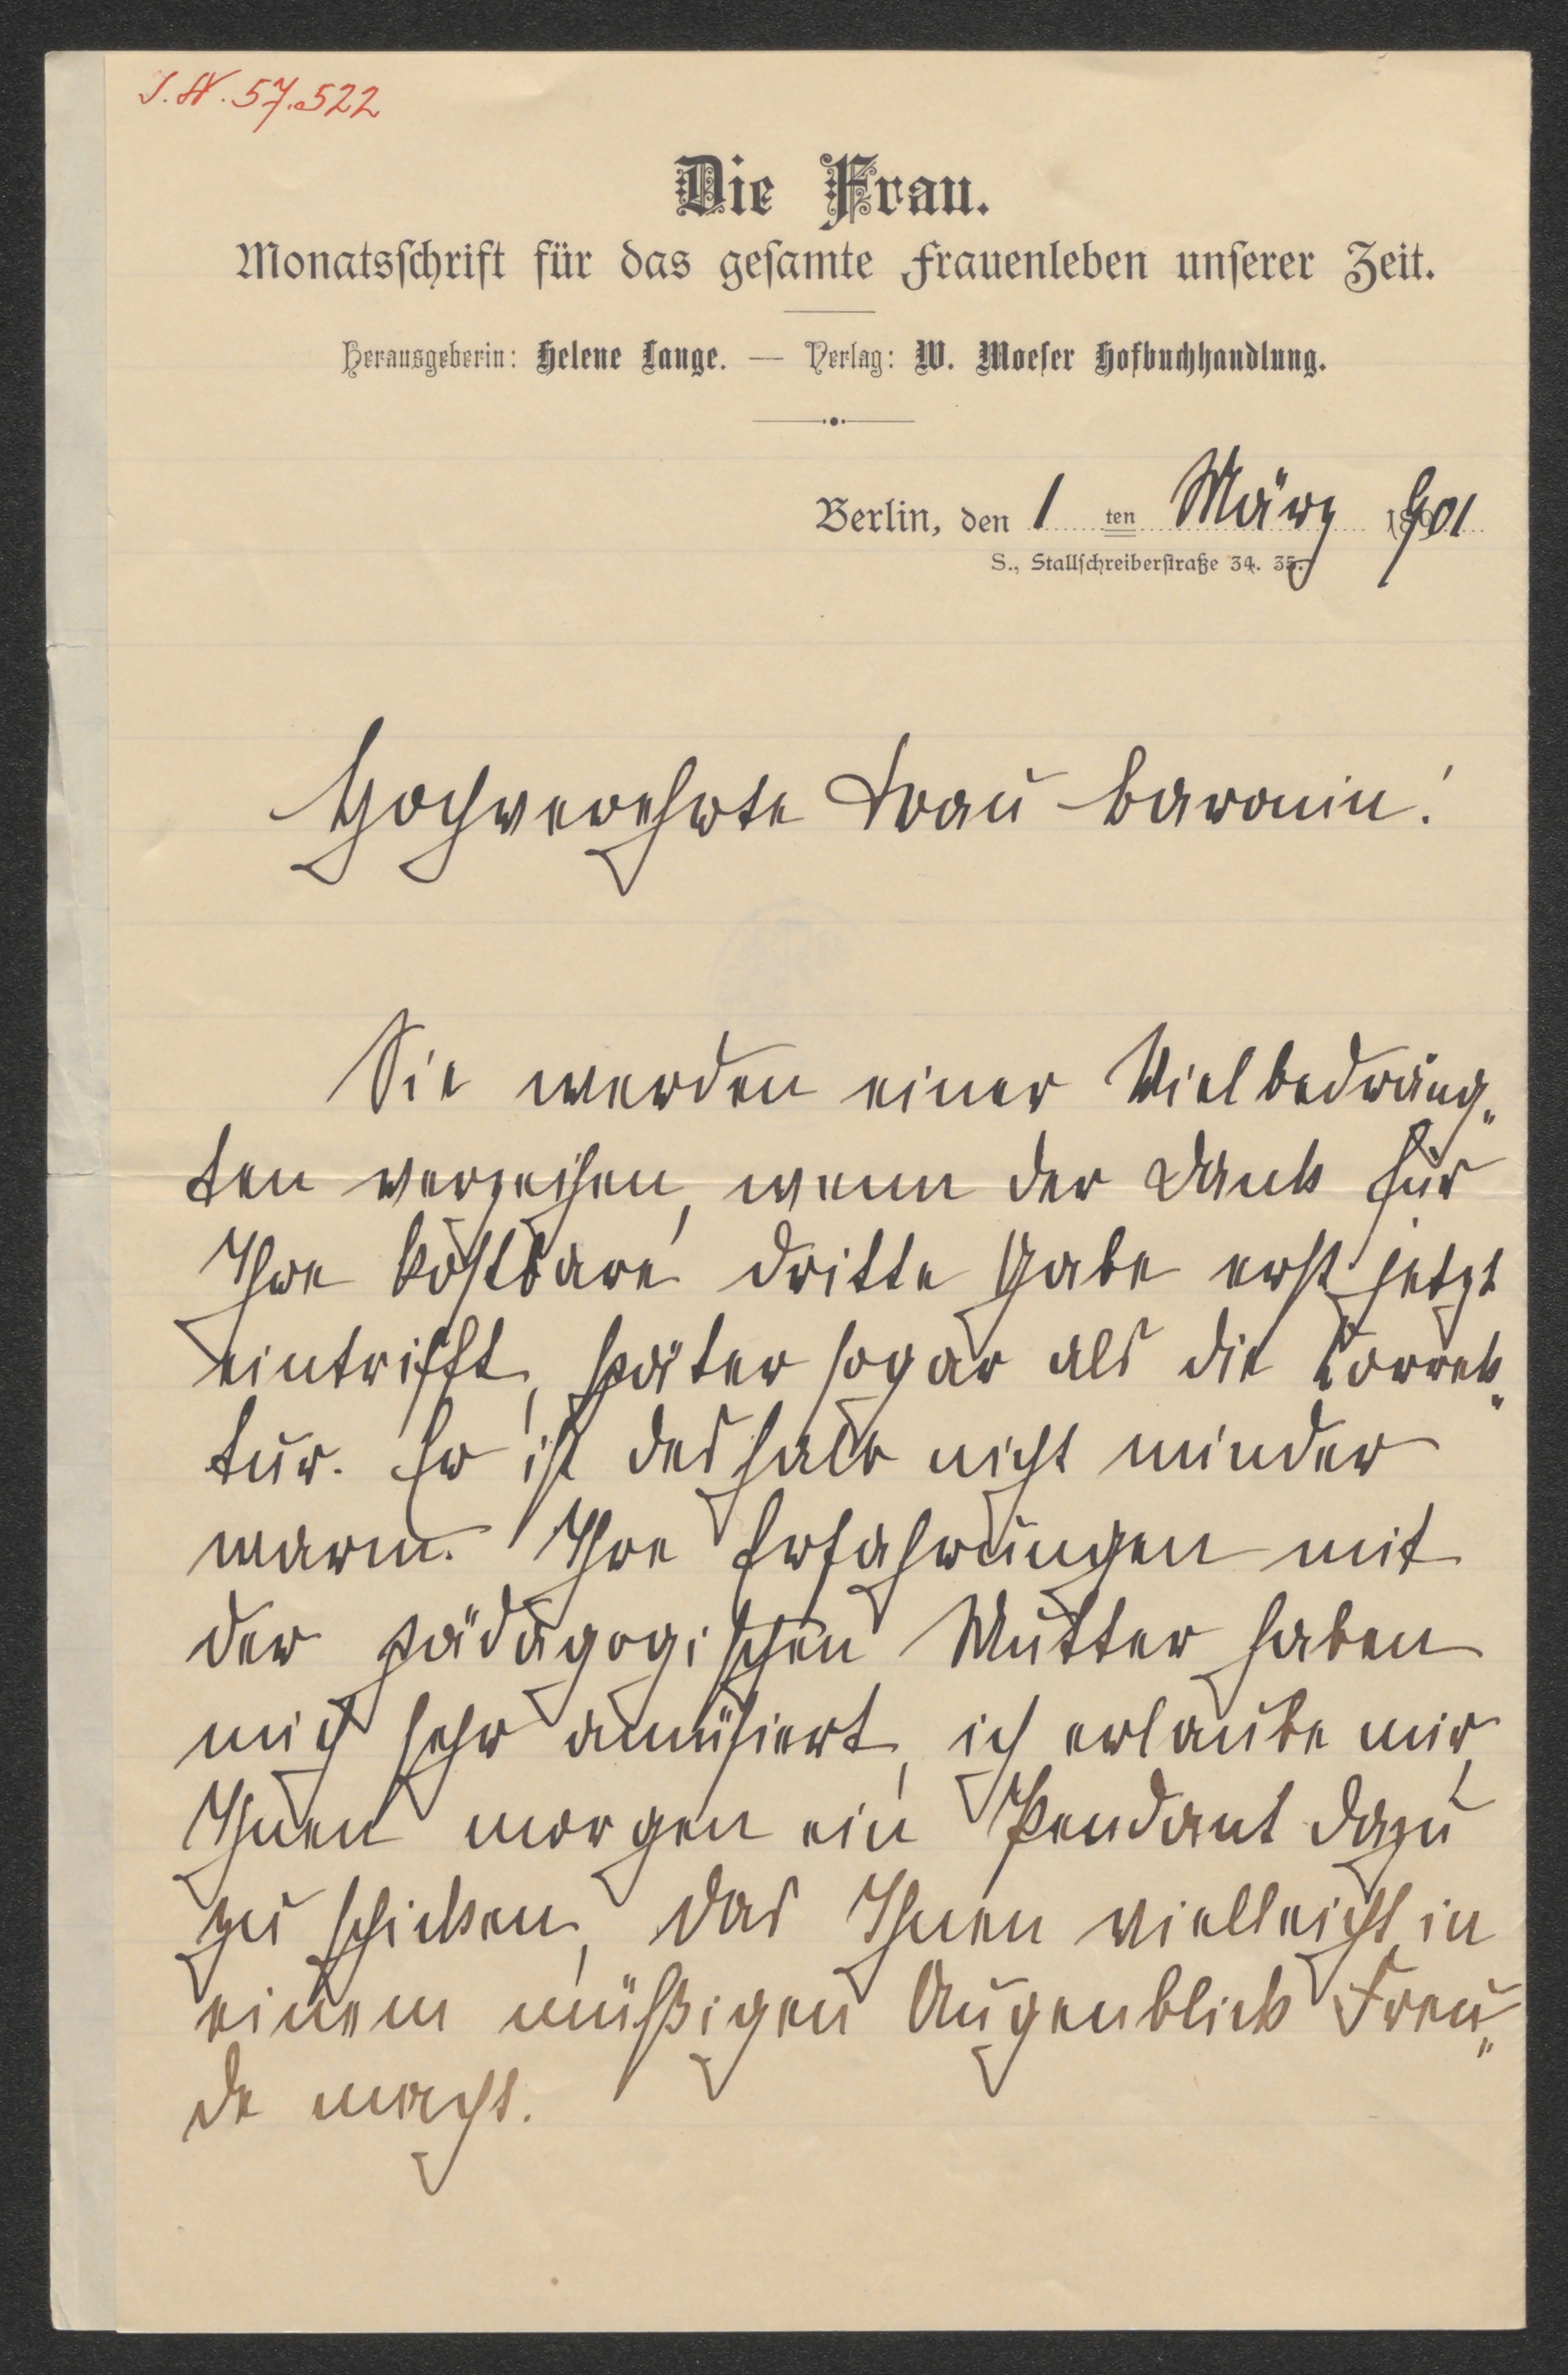 I.N. 57.522
Die Frau.
Monatsschrift für das gesamte Frauenleben unserer Zeit.
Herausgeberin: Helene Lange. — Verlag: W. Moeser Hofbuchhandlung.
Berlin, den 1 ten März 1901
S., Stallschreiberstraße 34. 35.
Hochverehrte Frau Baronin!
Sie werden einer Vielbedräng-
ten verzeihen, wenn der Dank für
Ihre kostbare dritte Gabe erst jetzt
eintrifft, später sogar als die Correk-
tur. Er ist deshalb nicht minder
warm. Ihre Erfahrungen mit
der pädagogischen Mutter haben
mich sehr amüsiert, ich erlaube mir,
Ihnen morgen ein Pendant dazu
zu schicken, das Ihnen vielleicht in
einem müßigen Augenblick Freu-
de macht.